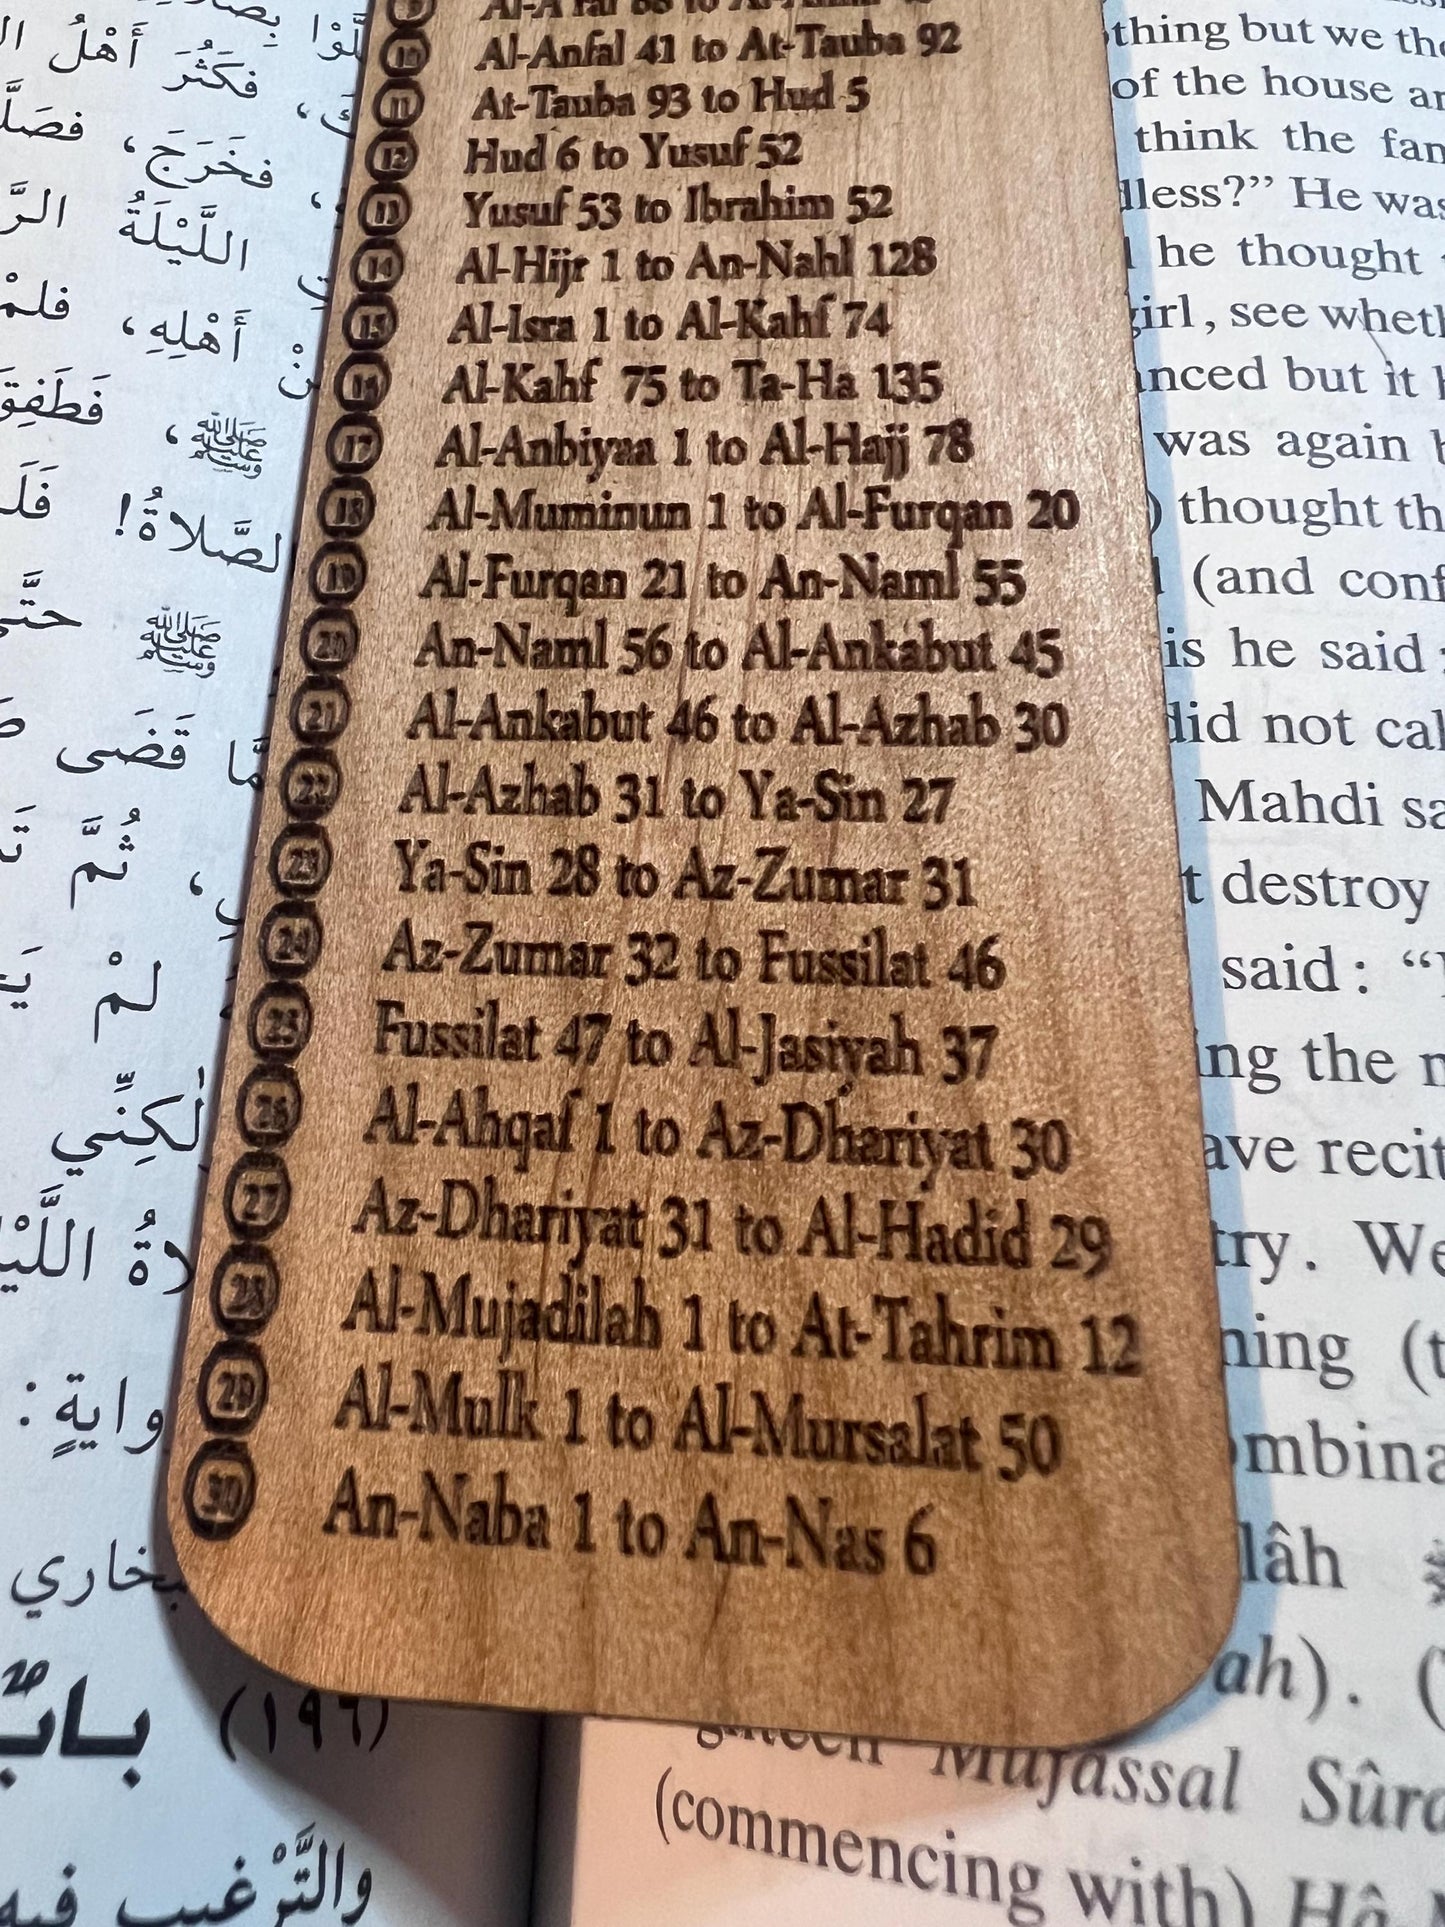 10 Al-Anfal 41 to At-Tauba 92
11 At-Tauba 93 to Hud 5
12 Hud 6 to Yusuf 52
13 Yusuf 53 to Ibrahim 52
14 Al-Hijr 1 to An-Nahl 128
15 Al-Isra 1 to Al-Kahf 74
16 Al-Kahf 75 to Ta-Ha 135
17 Al-Anbiyaa 1 to Al-Hajj 78
18 Al-Muminun 1 to Al-Furqan 20
19 Al-Furqan 21 to An-Naml 55
20 An-Naml 56 to Al-Ankabut 45
21 Al-Ankabut 46 to Al-Azhab 30
22 Al-Azhab 31 to Ya-Sin 27
23 Ya-Sin 28 to Az-Zumar 31
24 Az-Zumar 32 to Fussilat 46
25 Fussilat 47 to Al-Jasiyah 37
26 Al-Ahqaf 1 to Az-Dhariyat 30
27 Az-Dhariyat 31 to Al-Hadid 29
28 Al-Mujadilah 1 to At-Tahrim 12
29 Al-Mulk 1 to Al-Mursalat 50
30 An-Naba 1 to An-Nas 6
فكَثُرَ أَهْلُ
فخَرَجَ، فصَلَّ
اللَّيْلَةُ الرَّ
أَهْلِهِ، فلمْ
فَطَفِقَ
ﷺ،
لصَّلاةُ! فَلَ
ﷺ حتَّى
مَّا قَضَى
ثُمَّ تَ
لمْ يَ
لٰكِنِّي
لاةُ اللَّيْ
واية:
بخاري
(١٩٦) بابُ
والتَّرْغيب فيه
thing but we the
of the house an
think the fam
dless?” He was
he thought
girl, see wheth
nced but it
was again
) thought th
(and conf
is he said
did not cal
Mahdi sa
t destroy
said: “
ing the
ave recit
try. We
ning (t
ombina
lâh ﷺ
ah). (
ghteen Mufassal Sûra
(commencing with) Hâ